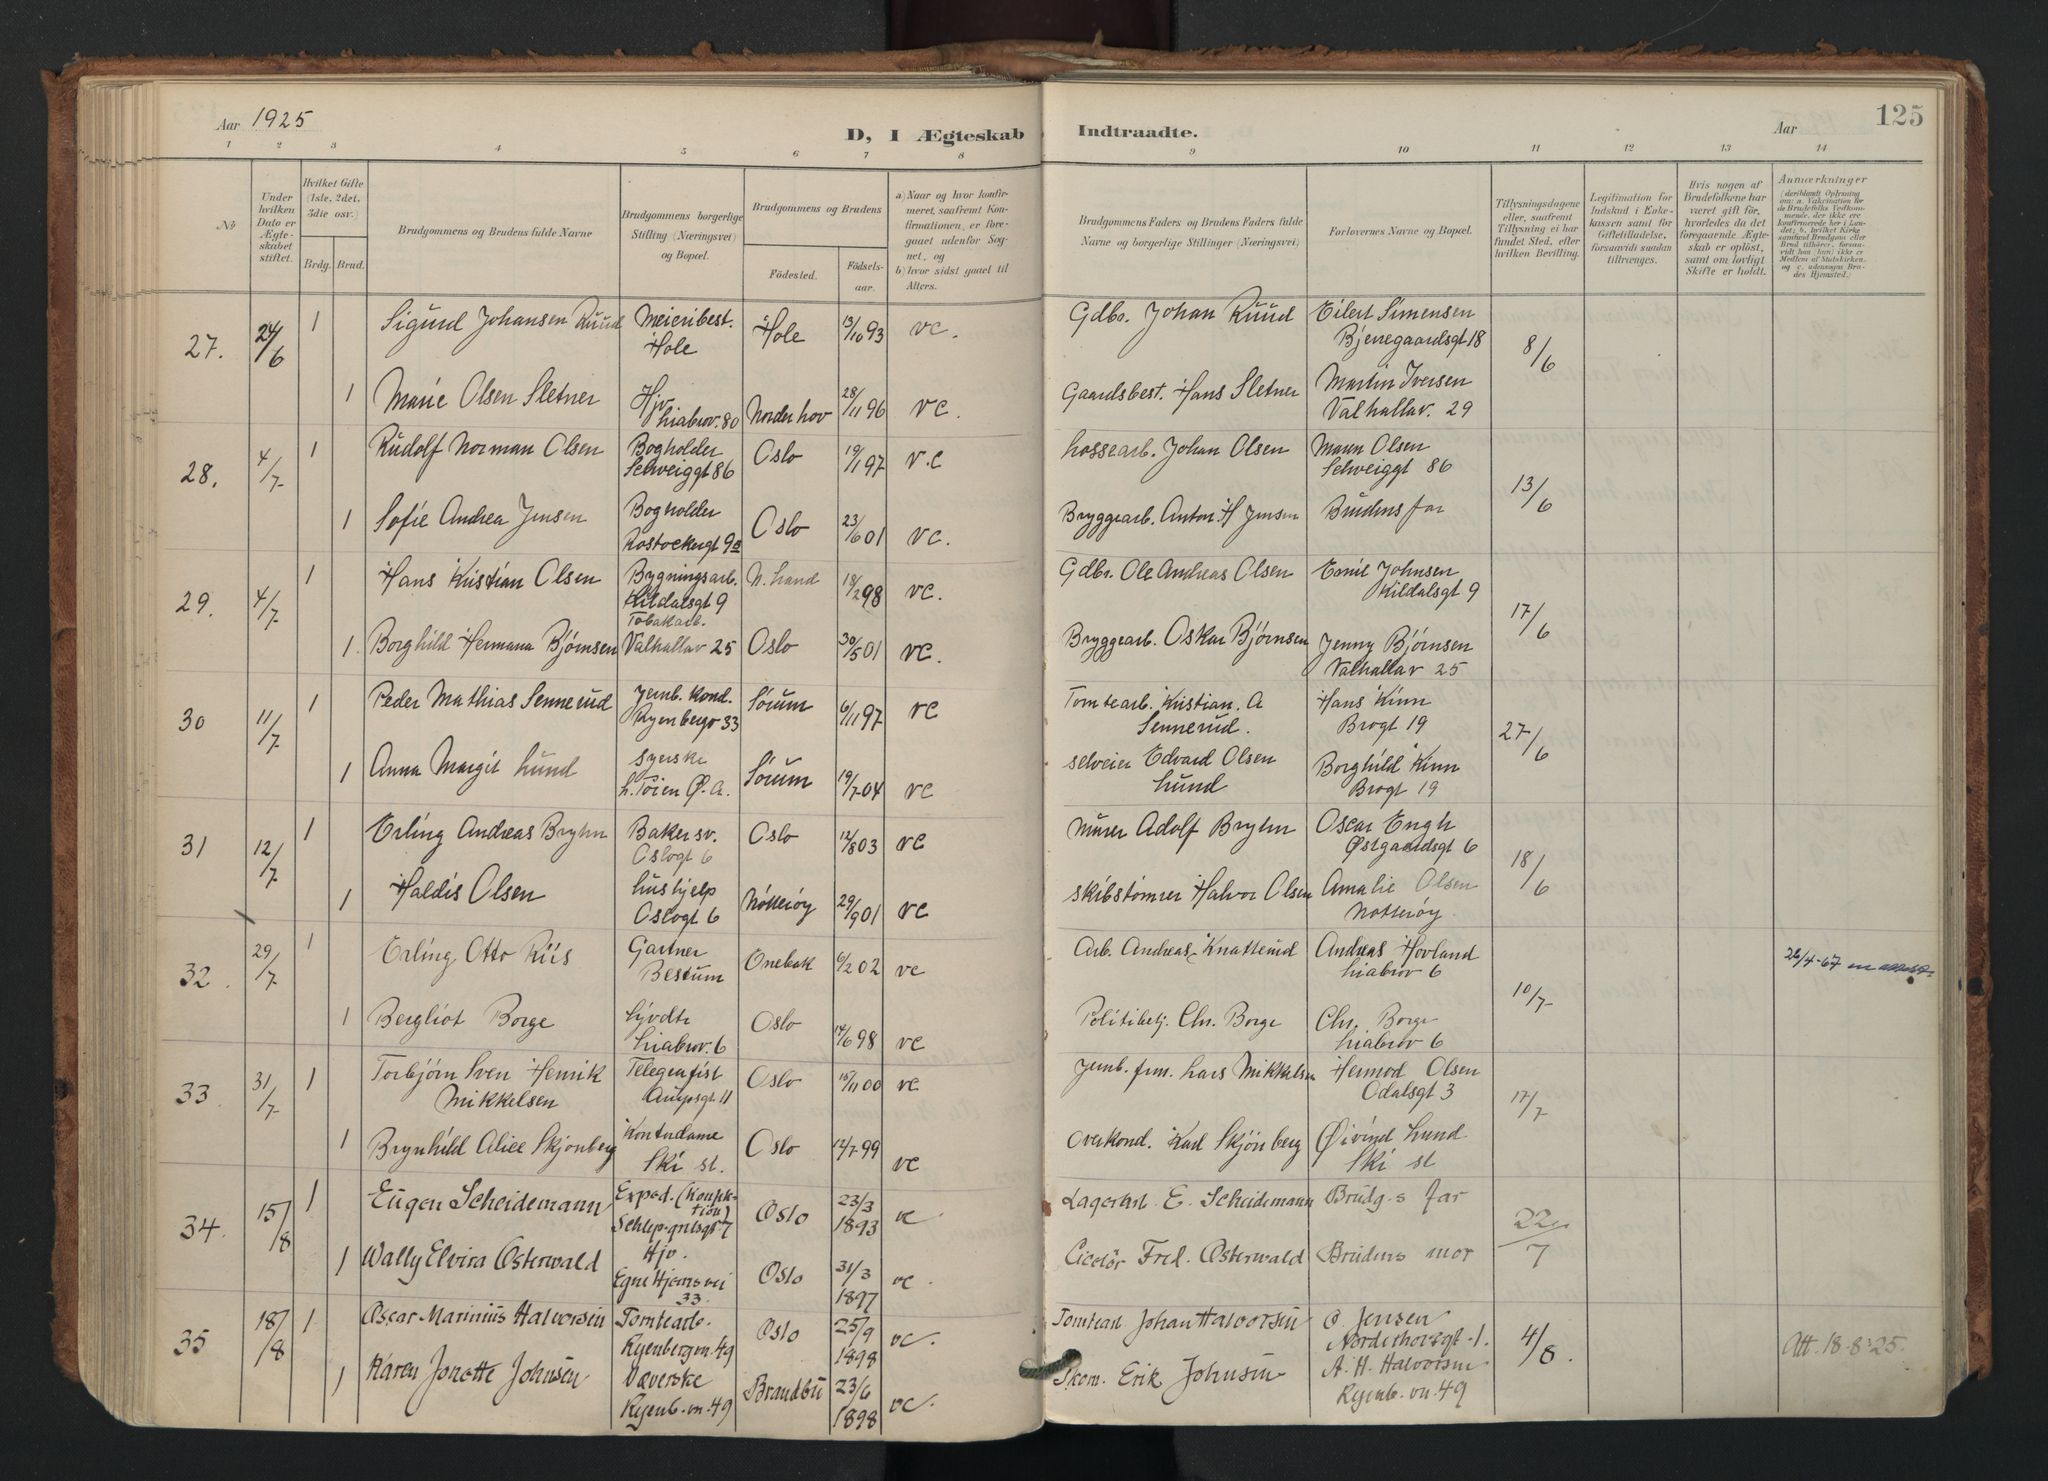 Aar 1925
D, I Ægteskab Indtraadte.
Aar
125
1 2 3 4 5 6 7 8 9 10 11 12 13 14
№
Under hvilken Dato er Ægteskabet stiftet.
Hvilket Gifte (1ste, 2det, 3die osv.)
Brdg. Brud.
Brudgommens og Brudens fulde Navne
Brudgommens borgerlige Stilling (Næringsvei) og Bopæl.
Brudgommens og Brudens
Fødested.
Fødselsaar.
a) Naar og hvor konfirmeret, saafremt Konfirmationen, er foregaaet udenfor Sognet, og
b) hvor sidst gaaet til Alters.
Brudgommens Faders og Brudens Faders fulde Navne og borgerlige Stillinger (Næringsvei)
Forlovernes Navne og Bopæl.
Tillysningsdagene eller, saafremt Tillysning ei har fundet Sted, efter hvilken Bevilling.
Legitimation for Indskud i Enkekassen samt for Giftetilladelse, forsaavidt saadan tiltrænges.
Hvis nogen af Brudefolkene har været gift før, hvorledes da det foregaaende Ægteskab er opløst, samt om lovligt Skifte er holdt.
Anmærkninger
27. 24/6 1 Sigurd Johansen Ruud Meieribest. Hole Hole 13/10 93 vc. Gdbr. Johan Ruud Eilert Simensen Bjerregaardsgt 18 8/6
1 Marie Olsen Sletner Hjv. Liabrov. 80 Norderhov 28/11 96 vc. Gaardsbest. Hans Sletner Martin Iversen Valhallav. 29
28. 4/7 1 Rudolf Norman Olsen Bogholder Schweiggt 86 Oslo 19/1 97 v.c Lossearb. Johan Olsen Olsen Schweiggt 86 13/6
1 Sofie Andrea Jensen Bogholder Rostockergt 9 Oslo 23/6 01 vc. Bryggearb. Anton H Jensen Brudens far
29. 4/7 1 Hans Kristian Olsen Bygningsarb. Kildalsgt 9 N. Land 18/2 98 vc. Gdbr. Ole Andreas Olsen Emil Johnsen Kildalsgt 9 17/6
1. Borghild Hermana Bjørnsen Tobakarb. Valhallav 25 Oslo 30/5 01 vc. Bryggearb. Oskar Bjørnsen Jenny Bjørnsen Valhallav 25
30 11/7 1 Peder Mathias Sennerud Jernb. kond. Ryenbergv 33 Sørum 6/11 97 vc Tomtearb. Kristian. A Sennerud. Hans Kinn Brogt 19 27/6
1 Anna Margit Lund Syerske L. Tøien Ø. A. Sørum 19/7 04 vc selveier Edvard Olsen Lund Borghild Kinn Brogt 19
31 12/7 1 Erling Andreas Bryhn Baker sv. Oslogt 6 Oslo 12/8 03 vc Murer Adolf Bryhn Oscar Engh Østgaardsgt 6 18/6
1 Haldis Olsen hushjelp Oslogt 6 Nøtterøy 29/9 01 vc skibstømrer Halvor Olsen Amalie Olsen Nøtterøy
32. 29/7 1 Erling Otto Riis Gartner Bestum Onebak 6/2 02 vc Arb. Andreas Knatterud Andreas Hovland Liabrov 6 10/7 26/4-67
1 Bergliot Borge Liabrov. 6 Oslo 14/6 98 vc Politibetj. Chr. Borge Chr. Borge Liabrov 6
33. 31/7 1 Torbjørn Sven Henrik Mikkelsen Telegrafist 11 Oslo 15/11 00 vc Jernb. fm. Lars Mikkelsen Hermod Olsen Odalsgt 3 17/7
1 Brynhild Alice Skjønberg Kontrdame Ski st. Oslo 12/7 99 vc Overkond. Karl Skjønberg Øivind Lund Ski st
34. 15/8 1 Eugen Scheidemann Exped. (Konfektion) Schlep.grllsgt 7 Oslo 23/3 1893 vc Lagerbst. E. Scheidemann Brudg-s far 22/7
1 Wally Elvira Osterwald Hjv. Egne Hjems vei 33. Oslo 31/3 1897 vc. Fred. Osterwald Brudens mor
35 18/8 1 Oscar Marinius Halvorsen Tomtearb. Ryenbergvn. 49 Oslo 25/9 1898 vc. Tomtearb Johan Halvorsen O. Jensen Norderhovsgt-1. 4/8. Att. 18-8-25.
1 Karen Jonette Johnsen Væverske Ryenb. vn. 49 Brandbu 23/6 1898 vc. Skom. Erik Johnsen A. H. Halvorsen Ryenb. vn. 49